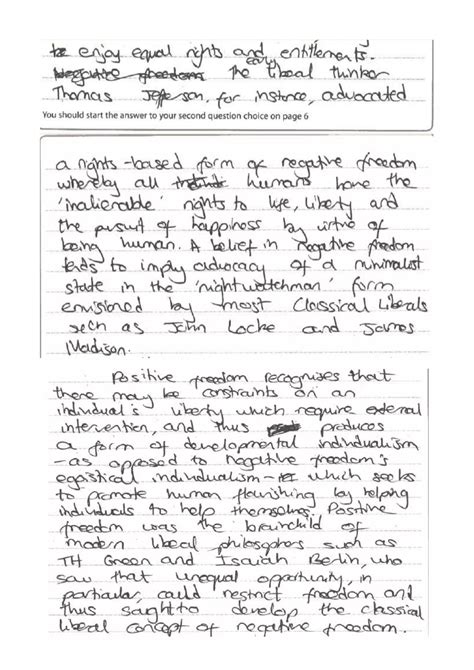 to enjoy equal rights and entitlements.
Negative freedom The early liberal thinker
Thomas Jefferson, for instance, advocated
You should start the answer to your second question choice on page 6
a rights-based form of negative freedom
whereby all humans have the
'inalienable' rights to life, liberty and
the pursuit of happiness by virtue of
being human. A belief in negative freedom
tends to imply advocacy of a minimalist
state in the 'nightwatchman' form
envisioned by most Classical Liberals
such as John Locke and James
Madison.
Positive freedom recognises that
there may be constraints on an
individual's liberty which require external
intervention, and thus produces
a form of developmental individualism
- as opposed to negative freedom's
egoistical individualism - which seeks
to promote human flourishing by helping
individuals to help themselves. Positive
freedom was the brainchild of
modern liberal philosophers such as
TH Green and Isaiah Berlin, who
saw that unequal opportunity, in
particular, could restrict freedom and
thus saught to develop the classical
liberal concept of negative freedom.